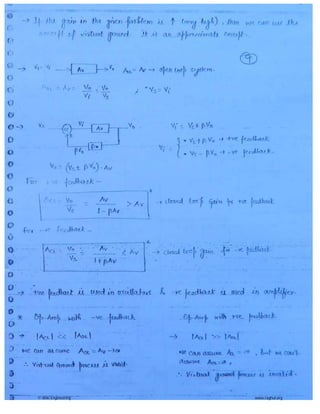 → If the gain in the given problem is ↑ (very high), then we can use the
concept of virtual ground. It is an approximate concept.
9
→ Vs = Vi → [Av] → Vo  AOL = Av → open loop system.
AOL = Av = Vo/Vi = Vo/Vs , ∵ Vs = Vi
→ Vs Vi Av Vo βVo
Vi = Vs ± βVo
Vi = { • Vs + βVo → +ve feedback
• Vs − βVo → −ve feedback.
Vo = (Vs ± βVo) · Av
For +ve feedback −
ACL = Vo/Vs = Av/(1 − βAv) > Av → closed loop gain for +ve feedback
for −ve feedback.
ACL = Vo/Vs = Av/(1 + βAv) < Av → closed loop gain for −ve feedback
→ +ve feedback is used in oscillators & −ve feedback is used in amplifier.
* Op-Amp with −ve feedback. Op-Amp with +ve feedback.
→ |ACL| << |AOL| → |ACL| >> |AOL|
we can assume AOL = Av → ∞ we can assume ACL = ∞, but we can't
assume AOL = ∞,
∴ Virtual Ground process is valid. ∴ Virtual ground process is invalid.